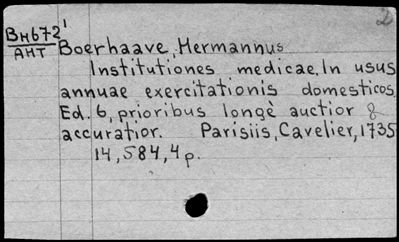 2
Bн672'
АНТ
Boerhaave, Hermannus
Institutiones medicae. In usus
annuae exercitationis domesticos
Ed. 6, prioribus longè auctior &
accuratior. Parisiis, Cavelier, 1735
14, 584, 4 p.